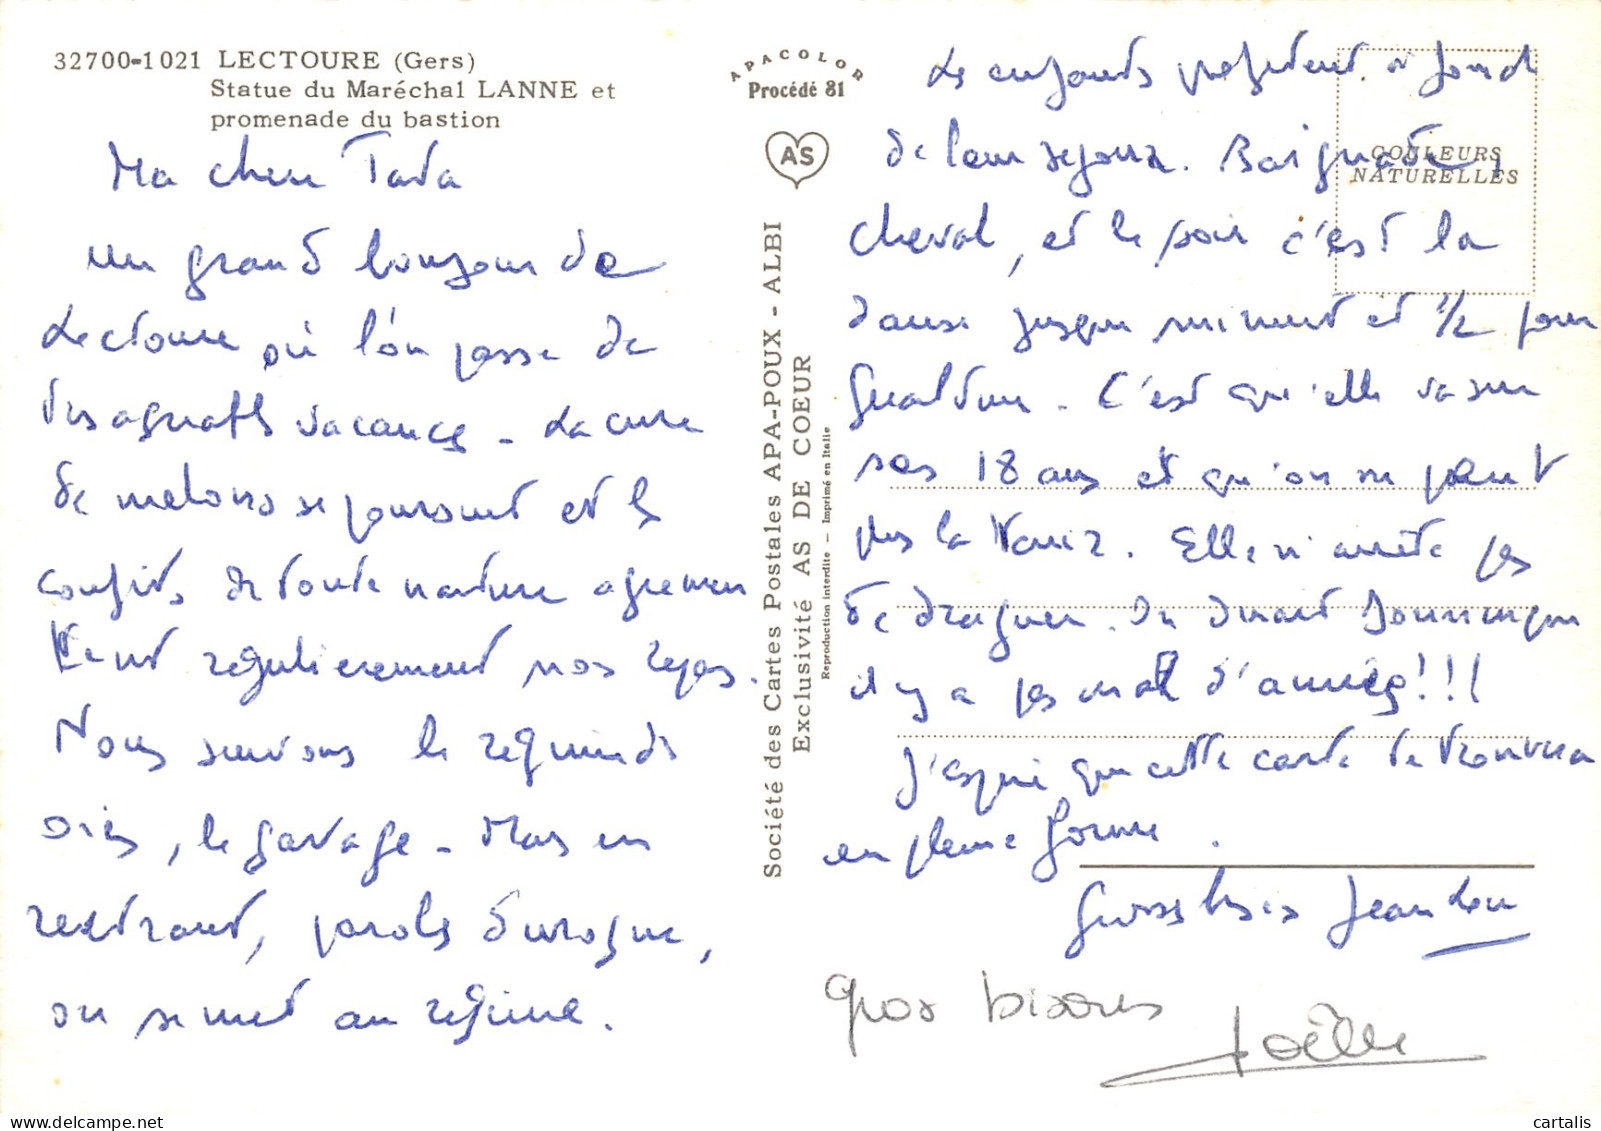 32700-1021 LECTOURE (Gers)
Statue du Maréchal LANNE et
promenade du bastion
Ma chere Tata
un grand bonjour de
Lectoure où l'on passe de
très agreables vacances - La cure
de melons se poursuit et les
confits de toute nature agremen
tent regulierement nos repas.
Nous suivons le regime des
oies, le gavage - Mais en
rentrant, parole d'ivrogne,
on se met au regime.
APACOLOR
Procédé 81
AS
Société des Cartes Postales APA-POUX - ALBI
Exclusivité AS DE COEUR
Reproduction interdite - Imprimé en Italie
COULEURS
NATURELLES
Les enfants profitent à fond
de leur sejour. Baignades,
cheval, et le soir c'est la
danse jusque minuit et 1/2 pour
C'est qu'elle va sur
ses 18 ans et qu'on ne peut
pas la tenir. Elle n'arrête pas
de draguer. On dirait
il y a pas mal d'années!!!
J'espere que cette carte te trouvera
en pleine forme.
Grosses bises Jean Lou
gros bisous
Joëlle
cartalis